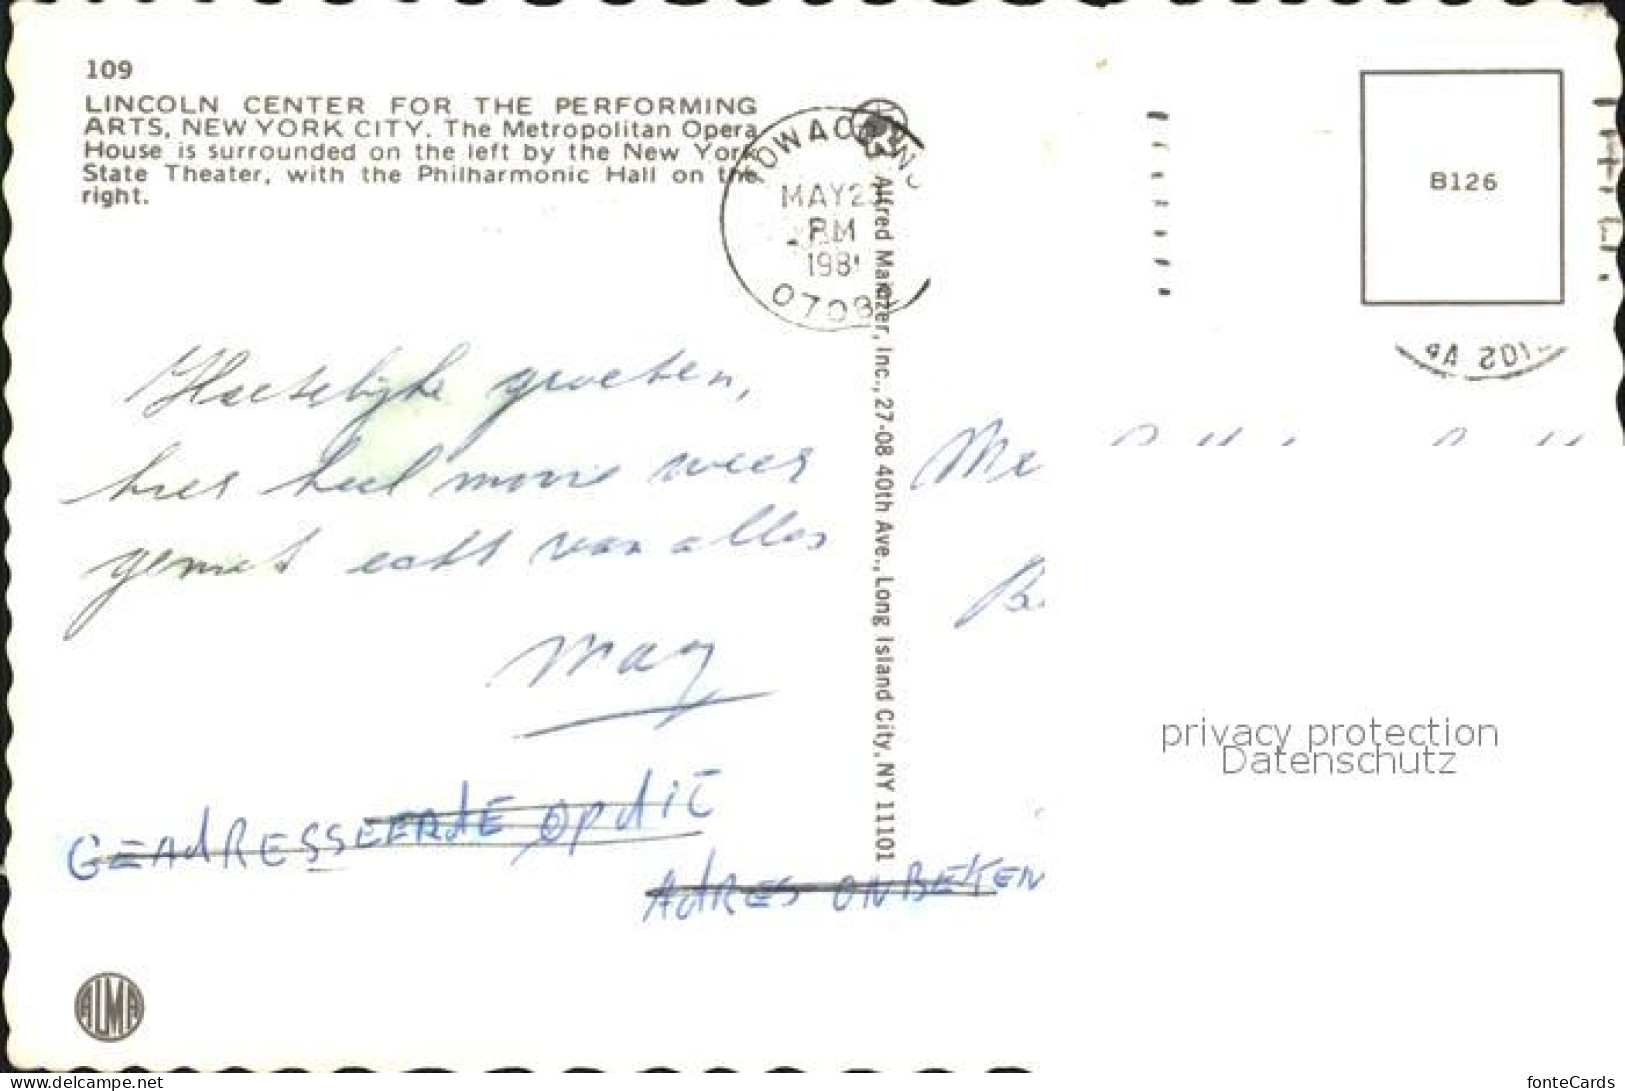 109
LINCOLN CENTER FOR THE PERFORMING
ARTS, NEW YORK CITY. The Metropolitan Opera
House is surrounded on the left by the New York
State Theater, with the Philharmonic Hall on the
right.
TOWACO, N
MAY 23
PM
198
0708
B126
Alfred Mainzer, Inc., 27-08 40th Ave., Long Island City, NY 11101
Hartelijke groeten,
hier heel mooi weer
geniet echt van alles
May
GEADRESSEERDE OP DIT
ADRES ONBEKEN
privacy protection
Datenschutz
ALMA
www.delcampe.net
fonteCards